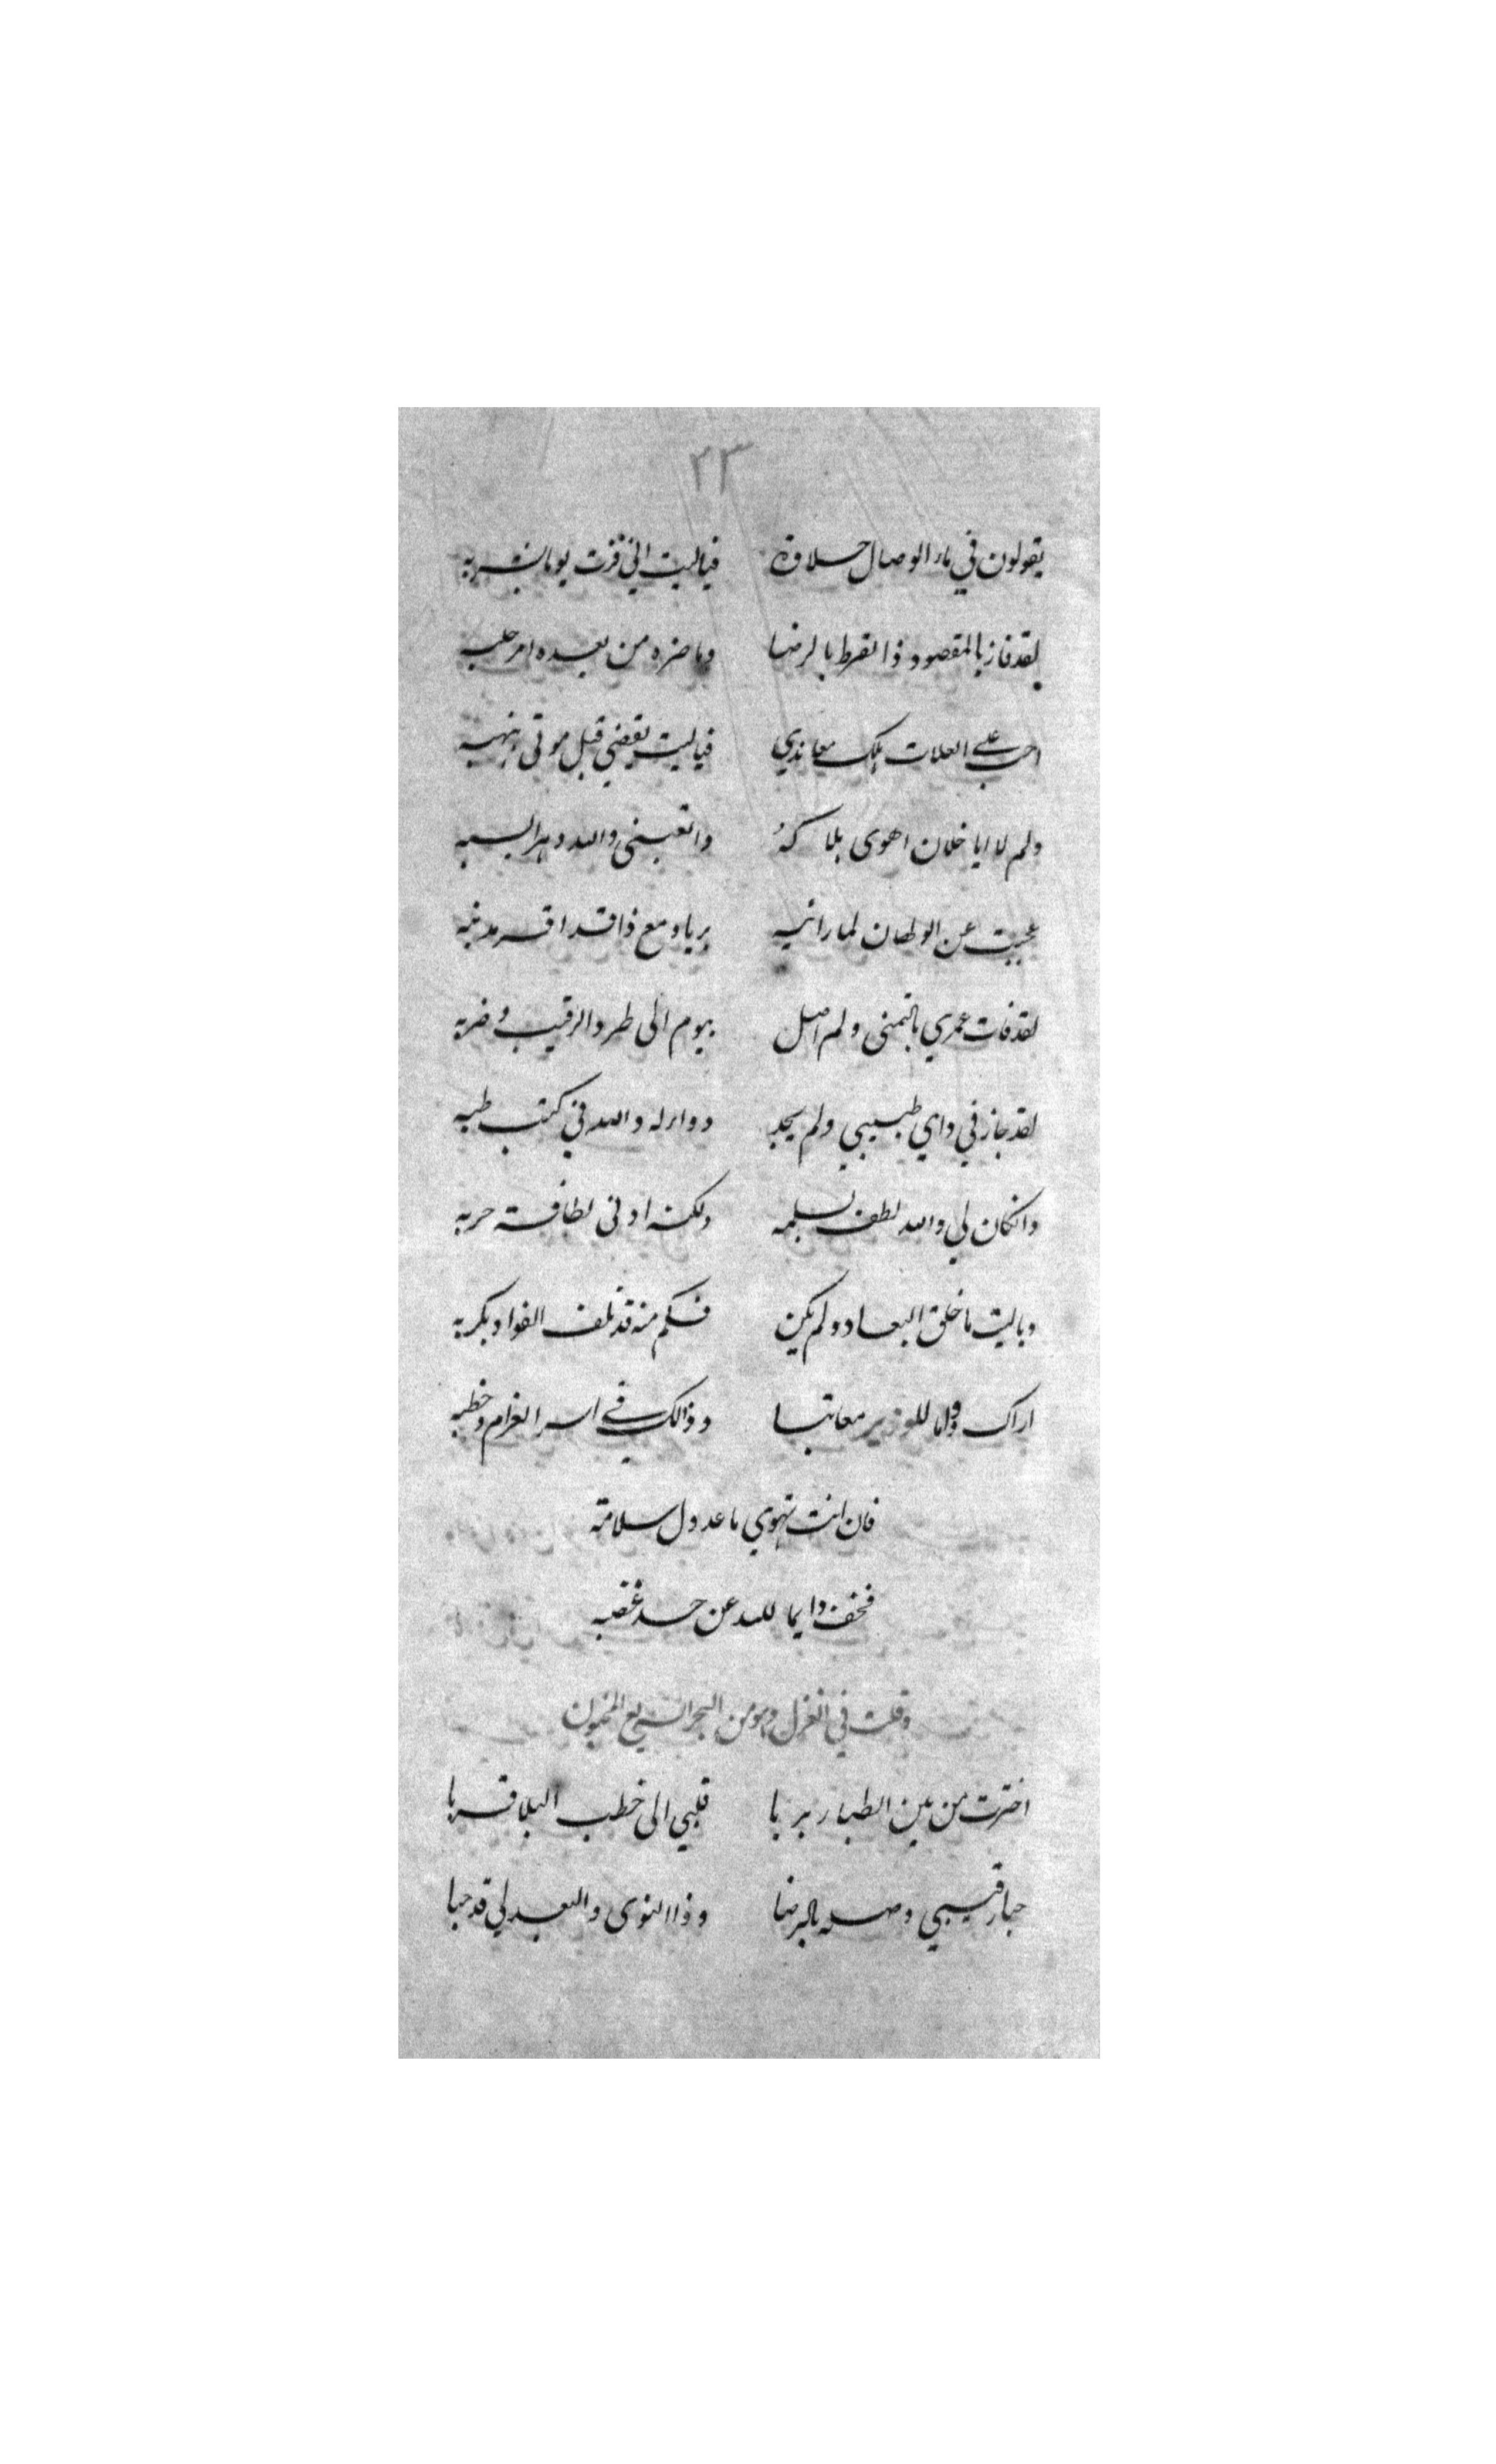 ٢٣
يقولون في ماء الوصال حلاوة فياليت اني فزت يوما بشربه
لقد فاز بالمقصود ذا القرط بالرضا وما ضره من بعده امر حلبه
احب على العلات هلك معاندي فياليت يقضي قبل موتي بنهبه
ولم لا ايا خلان اهوى بلاكه واتعبني والله دهرا بسبه
عجبت عن الولهان لما رانيه برياه مع ذا قد اقر بذنبه
لقد فات عمري بالتمنى ولم اصل بيوم الى طرد الرقيب وضربه
لقد جاز في داي طبيبي ولم يجد دواء له والله في كتب طبه
وانكان لي والله لطف بسلمه ولكنه ادنى لطافة حربه
وياليت ما خلق البعاد ولم يكن فكم منه قد تلف الفواد بكربه
اراك دواما للوزير معاتبا وذالك في اسر الغرام وخطبه
فان انت تهوي يا عدول سلامة
فخف دايما لله عن حد غضبه
وقلت في الغزل وهو من البحر السريع المخبون
اخترت من بين الظباء ربربا قلبي الى خطب البلا قربا
حبا رقيبي وصله بالرضا وذا النوى والبعد لي قد حبا